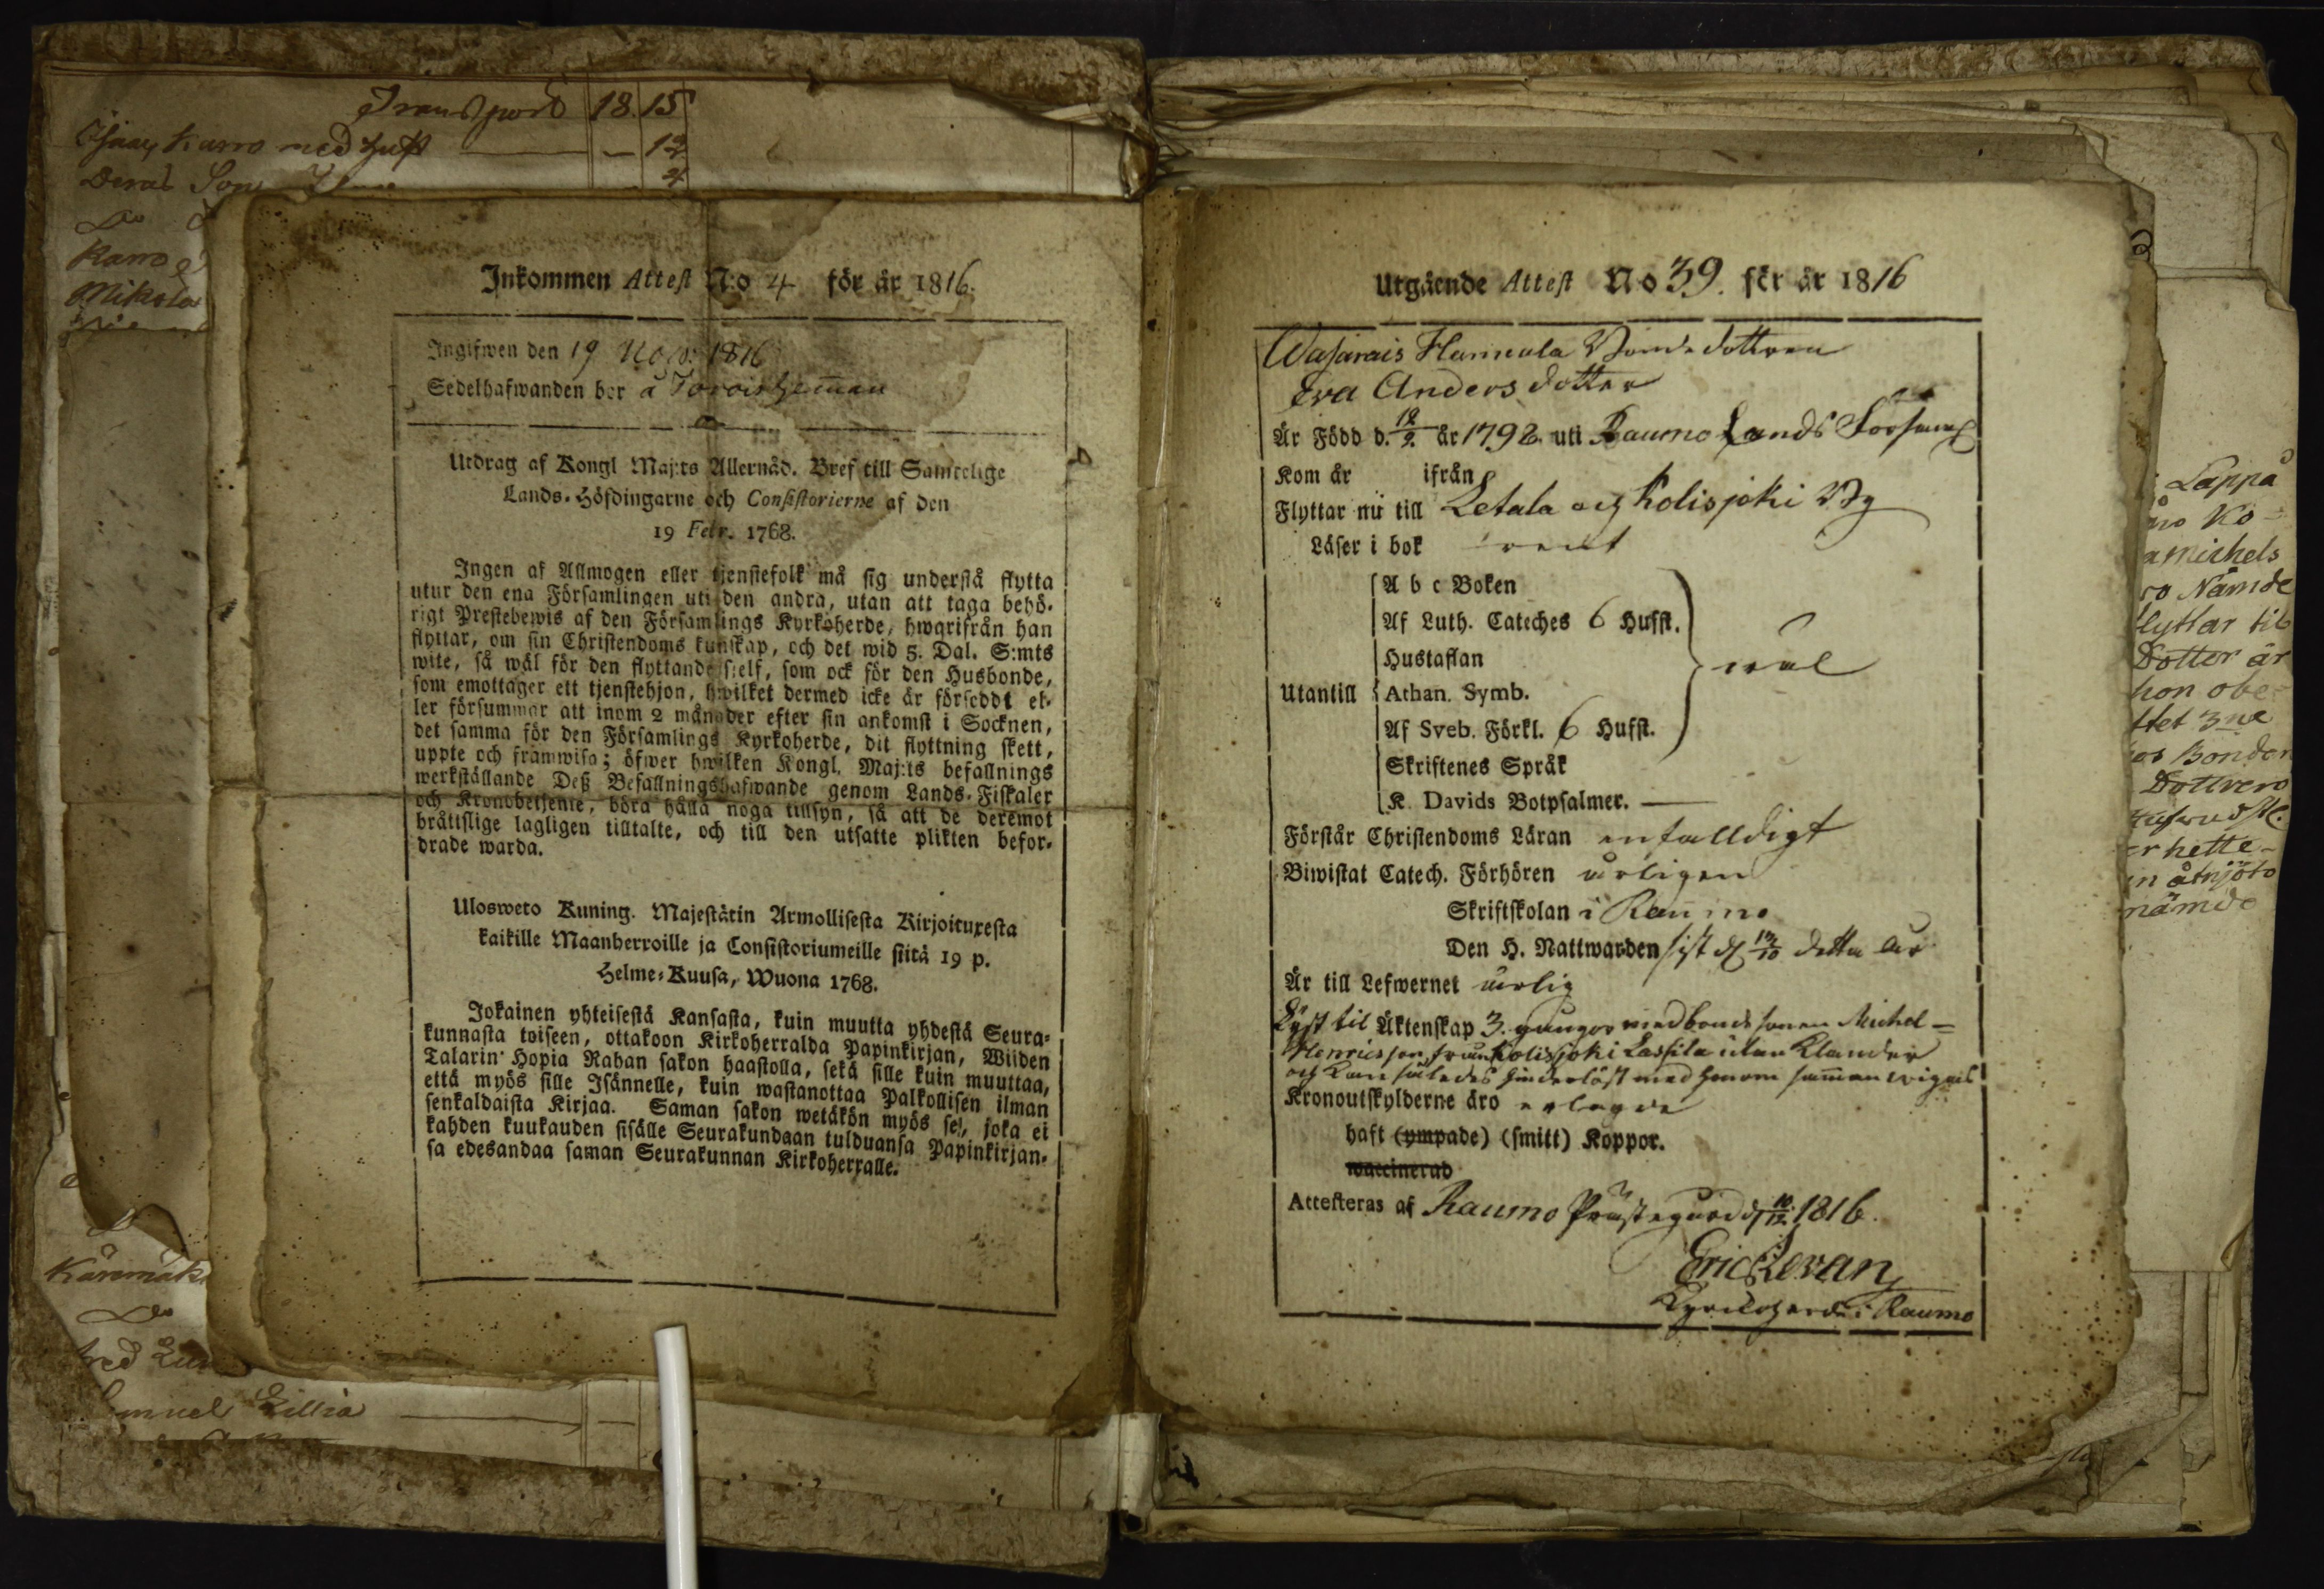 Transport 18. 15
Karro med hust — — 12
Deras Son
Do
Karro
Mikola
Inkommen Attest N:o 4 för år 1816.
Ingifwen den 19 Nov: 1816
Sedelhafwanden bor å
Utdrag af Kongl Maj:ts Allernåd. Bref till Samtelige
Lands-Höfdingarne och Consistorierne af den
19 Febr. 1768.
Ingen af Allmogen eller tjenstefolk må sig understå flytta
utur den ena Församlingen uti den andra, utan att taga behö-
rigt Prestebewis af den Församlings Kyrkoherde, hwarifrån han
flyttar, om sin Christendoms kunskap, och det wid 5. Dal. S:mts
wite, så wäl för den flyttande sjelf, som ock för den Husbonde,
som emottager ett tjenstehjon, hwilket dermed icke är förseddt el-
ler försummar att inom 2 månader efter sin ankomst i Socknen,
det samma för den Församlings Kyrkoherde, dit flyttning skett,
uppte och framwisa; öfwer hwilken Kongl. Maj:ts befallnings
werkställande Deß Befallningshafwande genom Lands-Fiskaler
och Kronobetjente, böra hålla noga tillsyn, så att de deremot
bråttslige lagligen tilltalte, och till den utsatte plikten befor-
drade warda.
Ulosweto Kuning. Majestätin Armollisesta Kirjoituxesta
kaikille Maanherroille ja Consistoriumeille siitä 19 p.
Helme-Kuusa, Wuona 1768.
Jokainen yhteisestä Kansasta, kuin muutta yhdestä Seura-
kunnasta toiseen, ottakoon Kirkoherralda Papinkirjan, Wiiden
Talarin Hopia Rahan sakon haastolla, sekä sille kuin muuttaa,
että myös sille Isännelle, kuin wastanottaa Palkollisen ilman
senkaldaista Kirjaa. Saman sakon wetäkön myös se, joka ei
kahden kuukauden sisälle Seurakundaan tulduansa Papinkirjan-
sa edesandaa saman Seurakunnan Kirkoherralle.
Do
Samuel Killia
Utgående Attest No 39. för år 1816
Wasarais Hannula Bondedottren
Eva Anders dotter
Är Född d. 12/2. år 1792. uti Raumo Lands Församl
Kom år ifrån
Flyttar nu till Letala och Kolisjoki By
Läser i bok rent
A b c Boken
Af Luth. Cateches 6 Hufst.
Hustaflan
wäl
Utantill Athan. Symb.
Af Sveb. Förkl. 6 Hufst.
Skriftenes Språk
K. Davids Botpsalmer. —
Förstår Christendoms Läran enfalldigt
Biwistat Catech. Förhören årligen
Skriftskolan i Raumo
Den H. Nattwarden sist d 13/10 detta år
Är till Lefwernet ärlig
Lyst til Äktenskap 3. gångor med bondesonen Michel
Henricsson från Kolisjoki Lassila utan Klander
och kan således hinderlöst med honom samman wigas
Kronoutskylderne äro erlagde
haft (ympade) (smitt) Koppor.
waccinerad
Attesteras af Raumo Prästegård d 10/12. 1816.
Eric Levan
Kyrckoherde i Raumo
Lappå
Ko-
michels
Nämde
flyttar til
Dotter är
hon obe-
ttet 3ne
Bonden
Dottrern
r hette-
n åtnjöto
nämde